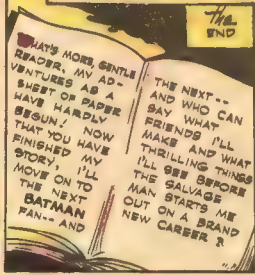 The
END
WHAT'S MORE, GENTLE
READER, MY AD-
VENTURES AS A
SHEET OF PAPER
HAVE HARDLY
BEGUN! NOW
THAT YOU HAVE
FINISHED MY
STORY, I'LL
MOVE ON TO
THE NEXT
BATMAN
FAN-- AND
THE NEXT--
AND WHO CAN
SAY WHAT
FRIENDS I'LL
MAKE AND WHAT
THRILLING THINGS
I'LL SEE BEFORE
THE SALVAGE
MAN STARTS ME
OUT ON A BRAND
NEW CAREER?